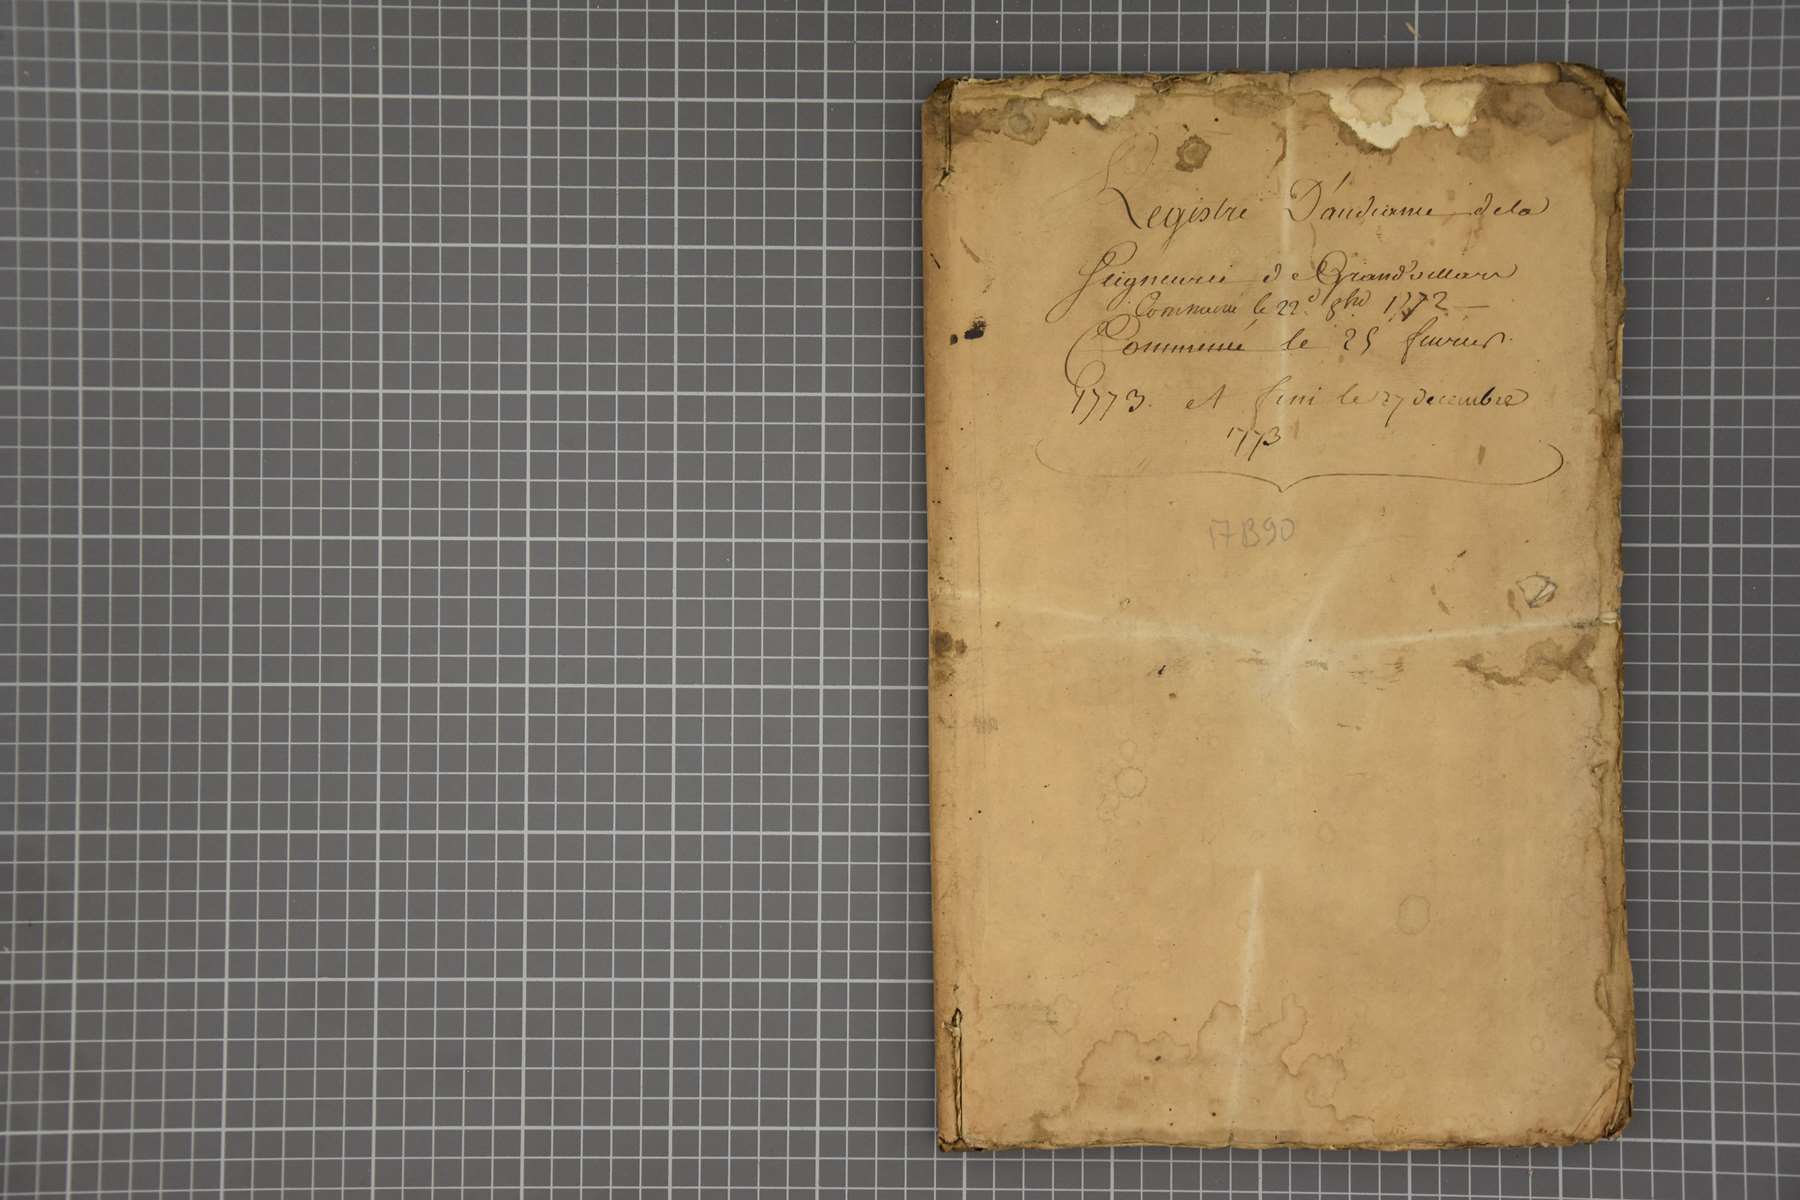 Registre D'audiance dela
Seigneurie de Grandvillars
Commencé le 22e. 8bre 1772 —
Commencé le 25 fevrier
1773. et fini le 27 decembre
1773
17B90